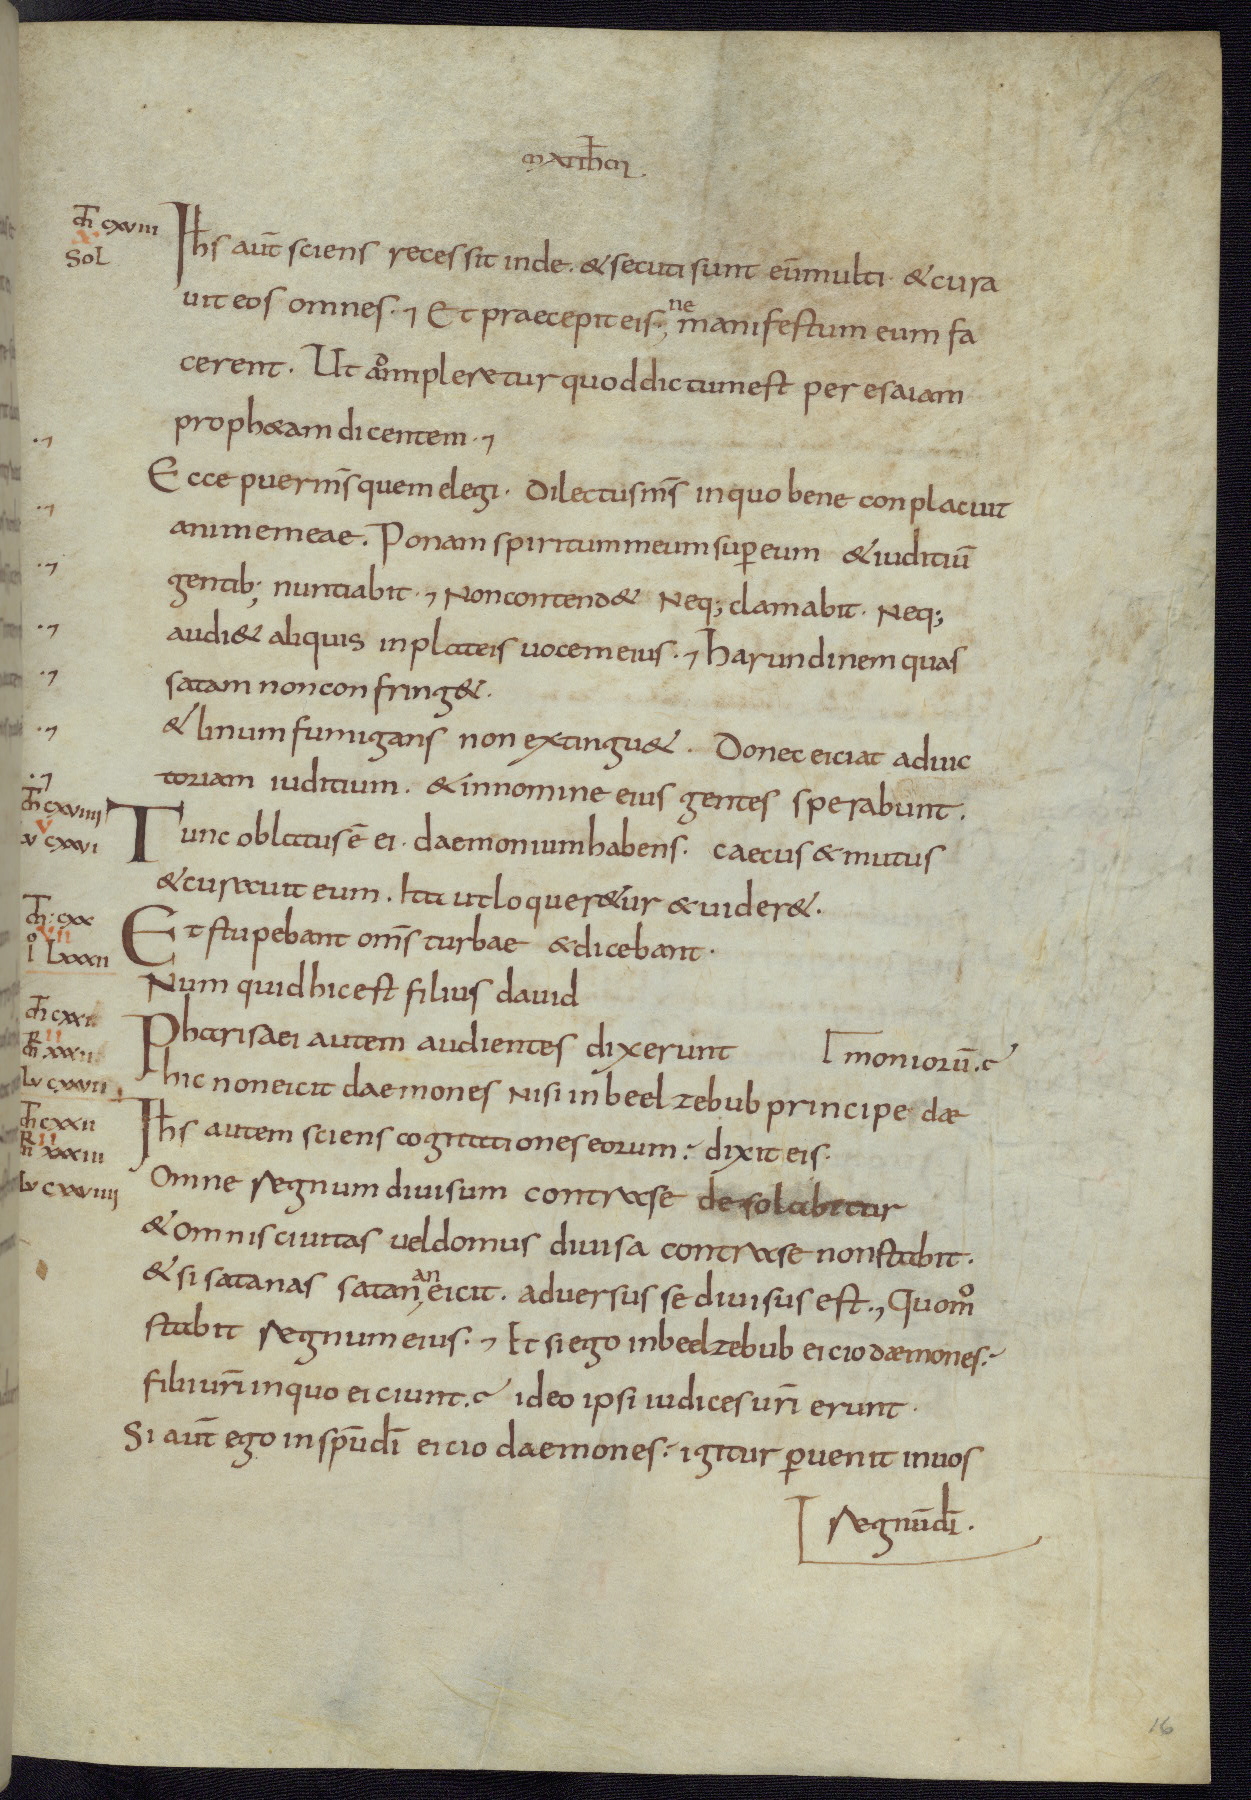 matthei
th cxviii
x
Sol
Ihs aut̄ sciens recessit inde. & secuti sunt eū multi. & cura
uit eos omnes. Et praecepit eis, ne manifestum eum fa
cerent. Ut adimpleretur quod dictum est per esaiam
proph&am dicentem
Ecce puer ms̄ quem elegi. Dilectus ms̄ in quo bene conplacuit
anime meae. Ponam spiritum meum sup̄ eum & iuditiū
gentib; nuntiabit. Non contend& Neq; clamabit. Neq;
audi& aliquis in plateis uocem eius. harundinem quas
satam non confring&.
& linum fumigans non extingu&. Donec eiciat ad uic
toriam iuditium. & in nomine eius gentes sperabunt.
th cxviiii
v
lv cxxvi
Tunc oblatus ē ei. daemonium habens. caecus & mutus
& curauit eum. Ita ut loquer&ur & uider&.
th cxx
vii
io lxxxii
Et stupebant oms̄ turbae & dicebant.
Num quid hic est filius dauid
th cxxi
ii
R xxxii
lv cxxvii
Pharisaei autem audientes dixerunt
moniorū.
hic non eicit daemones Nisi in beelzebub principe dae
th cxxii
ii
R xxxiii
lv cxxviiii
Ihs autem sciens cogitationes eorum: dixit eis.
Omne regnum diuisum contra se desolabitur
& omnis ciuitas uel domus diuisa contra se non stabit.
& si satanas satanan eicit. aduersus se diuisus est., Quom̊
stabit regnum eius. Et si ego in beelzebub eicio dæmones:
filii urī in quo eiciunt. ideo ipsi iudices urī erunt.
Si aut̄ ego in spū dī eicio daemones: igitur p̄uenit in uos
regnū dī.
16